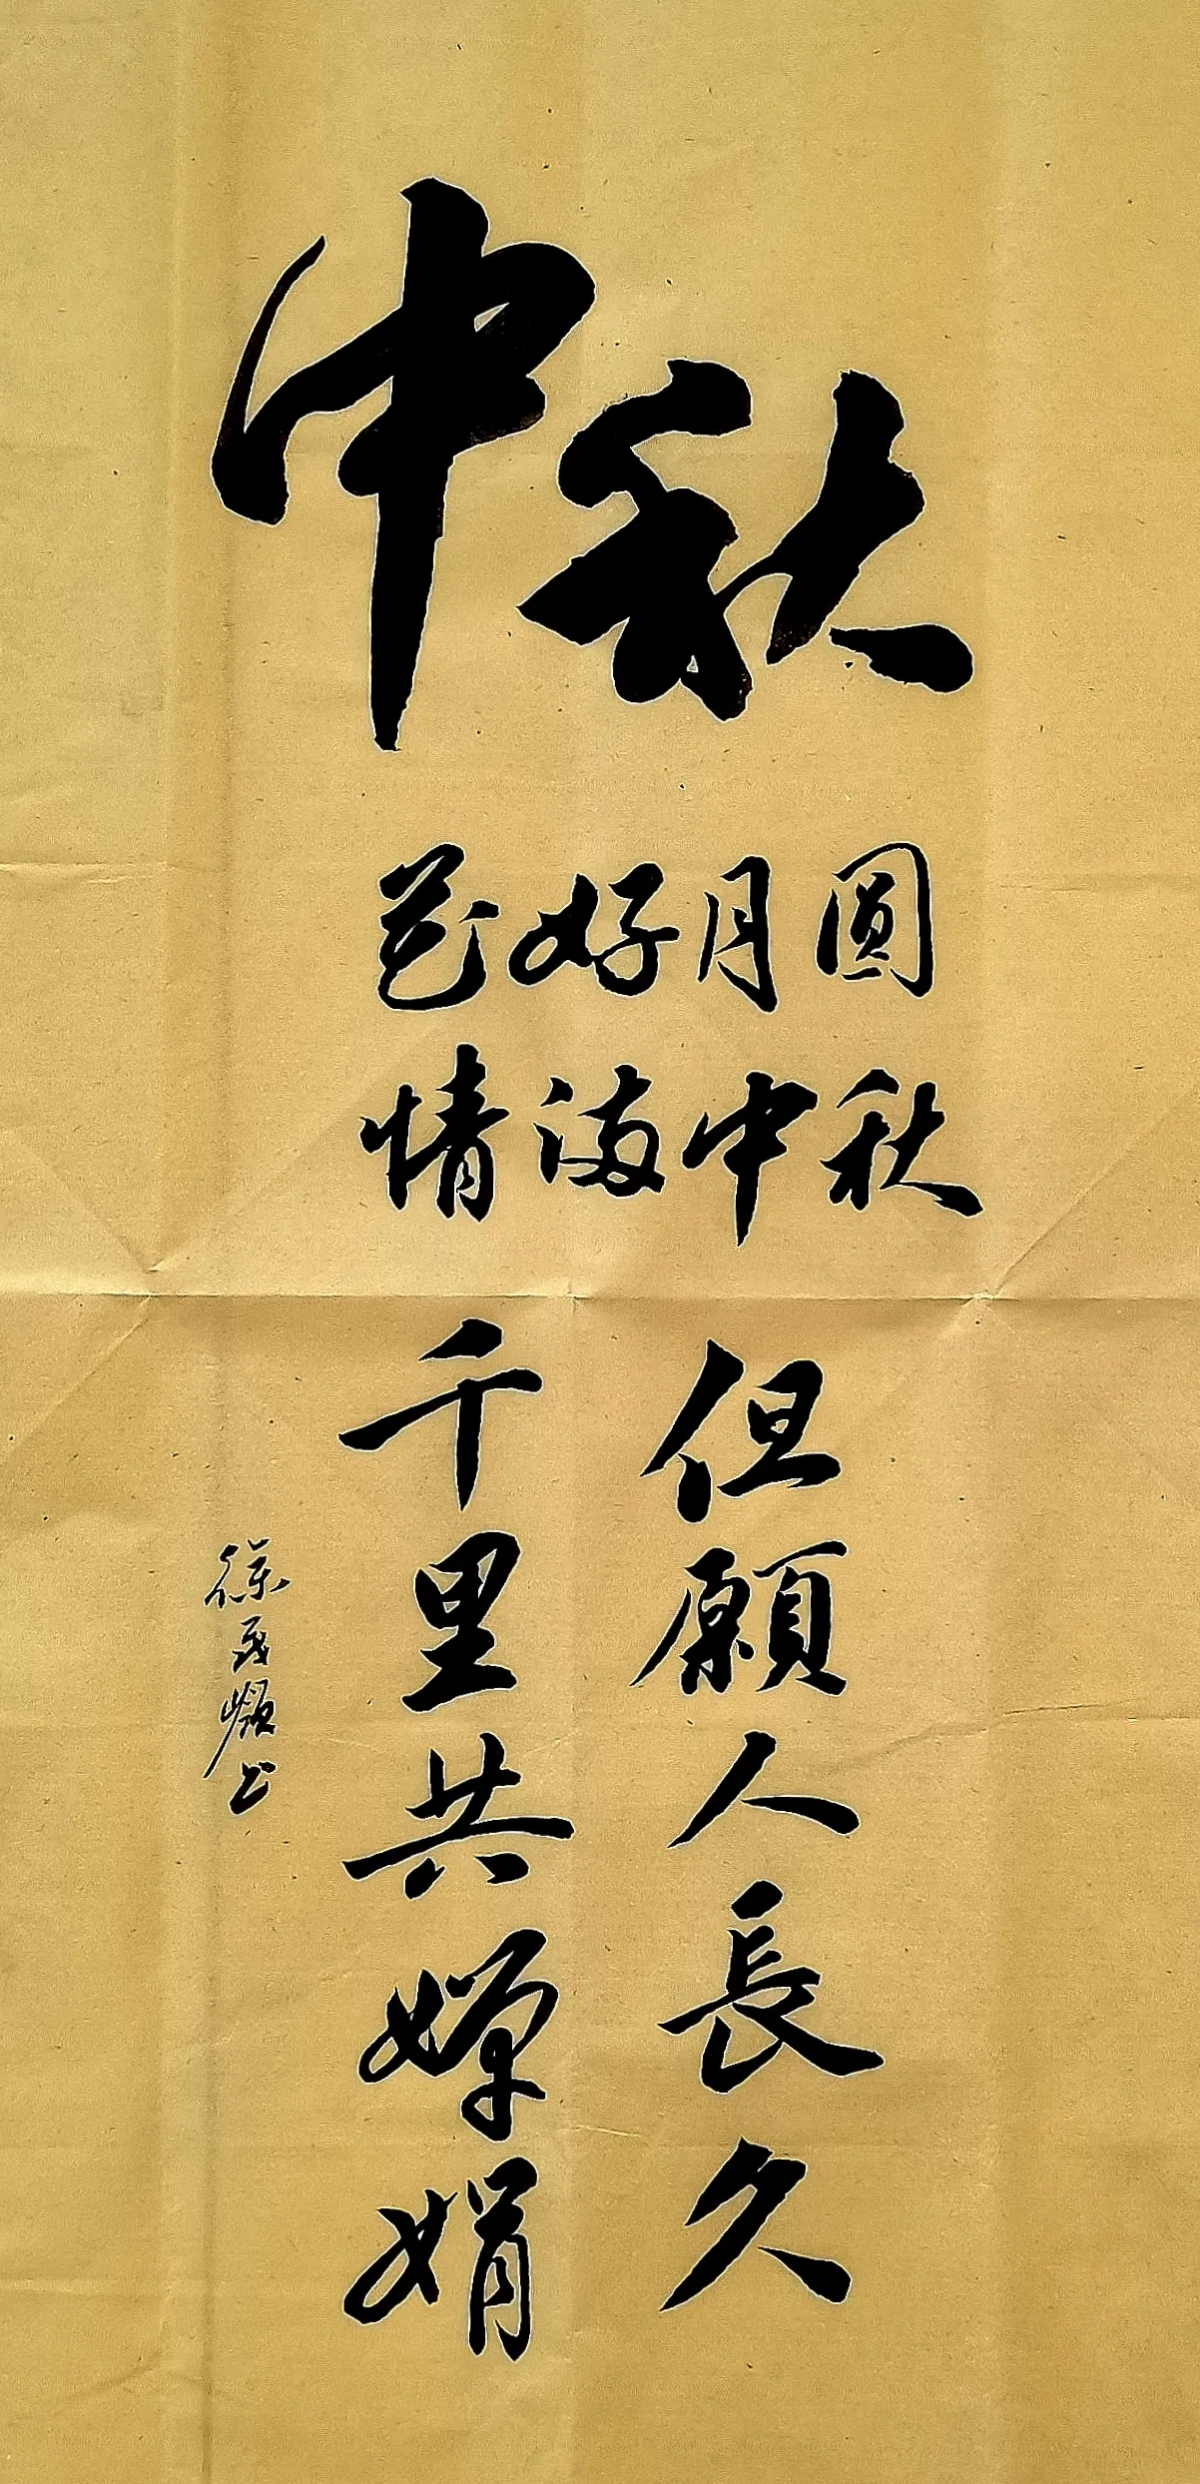 中秋
花好月圓
情满中秋
但願人長久
千里共嬋娟
徐 书